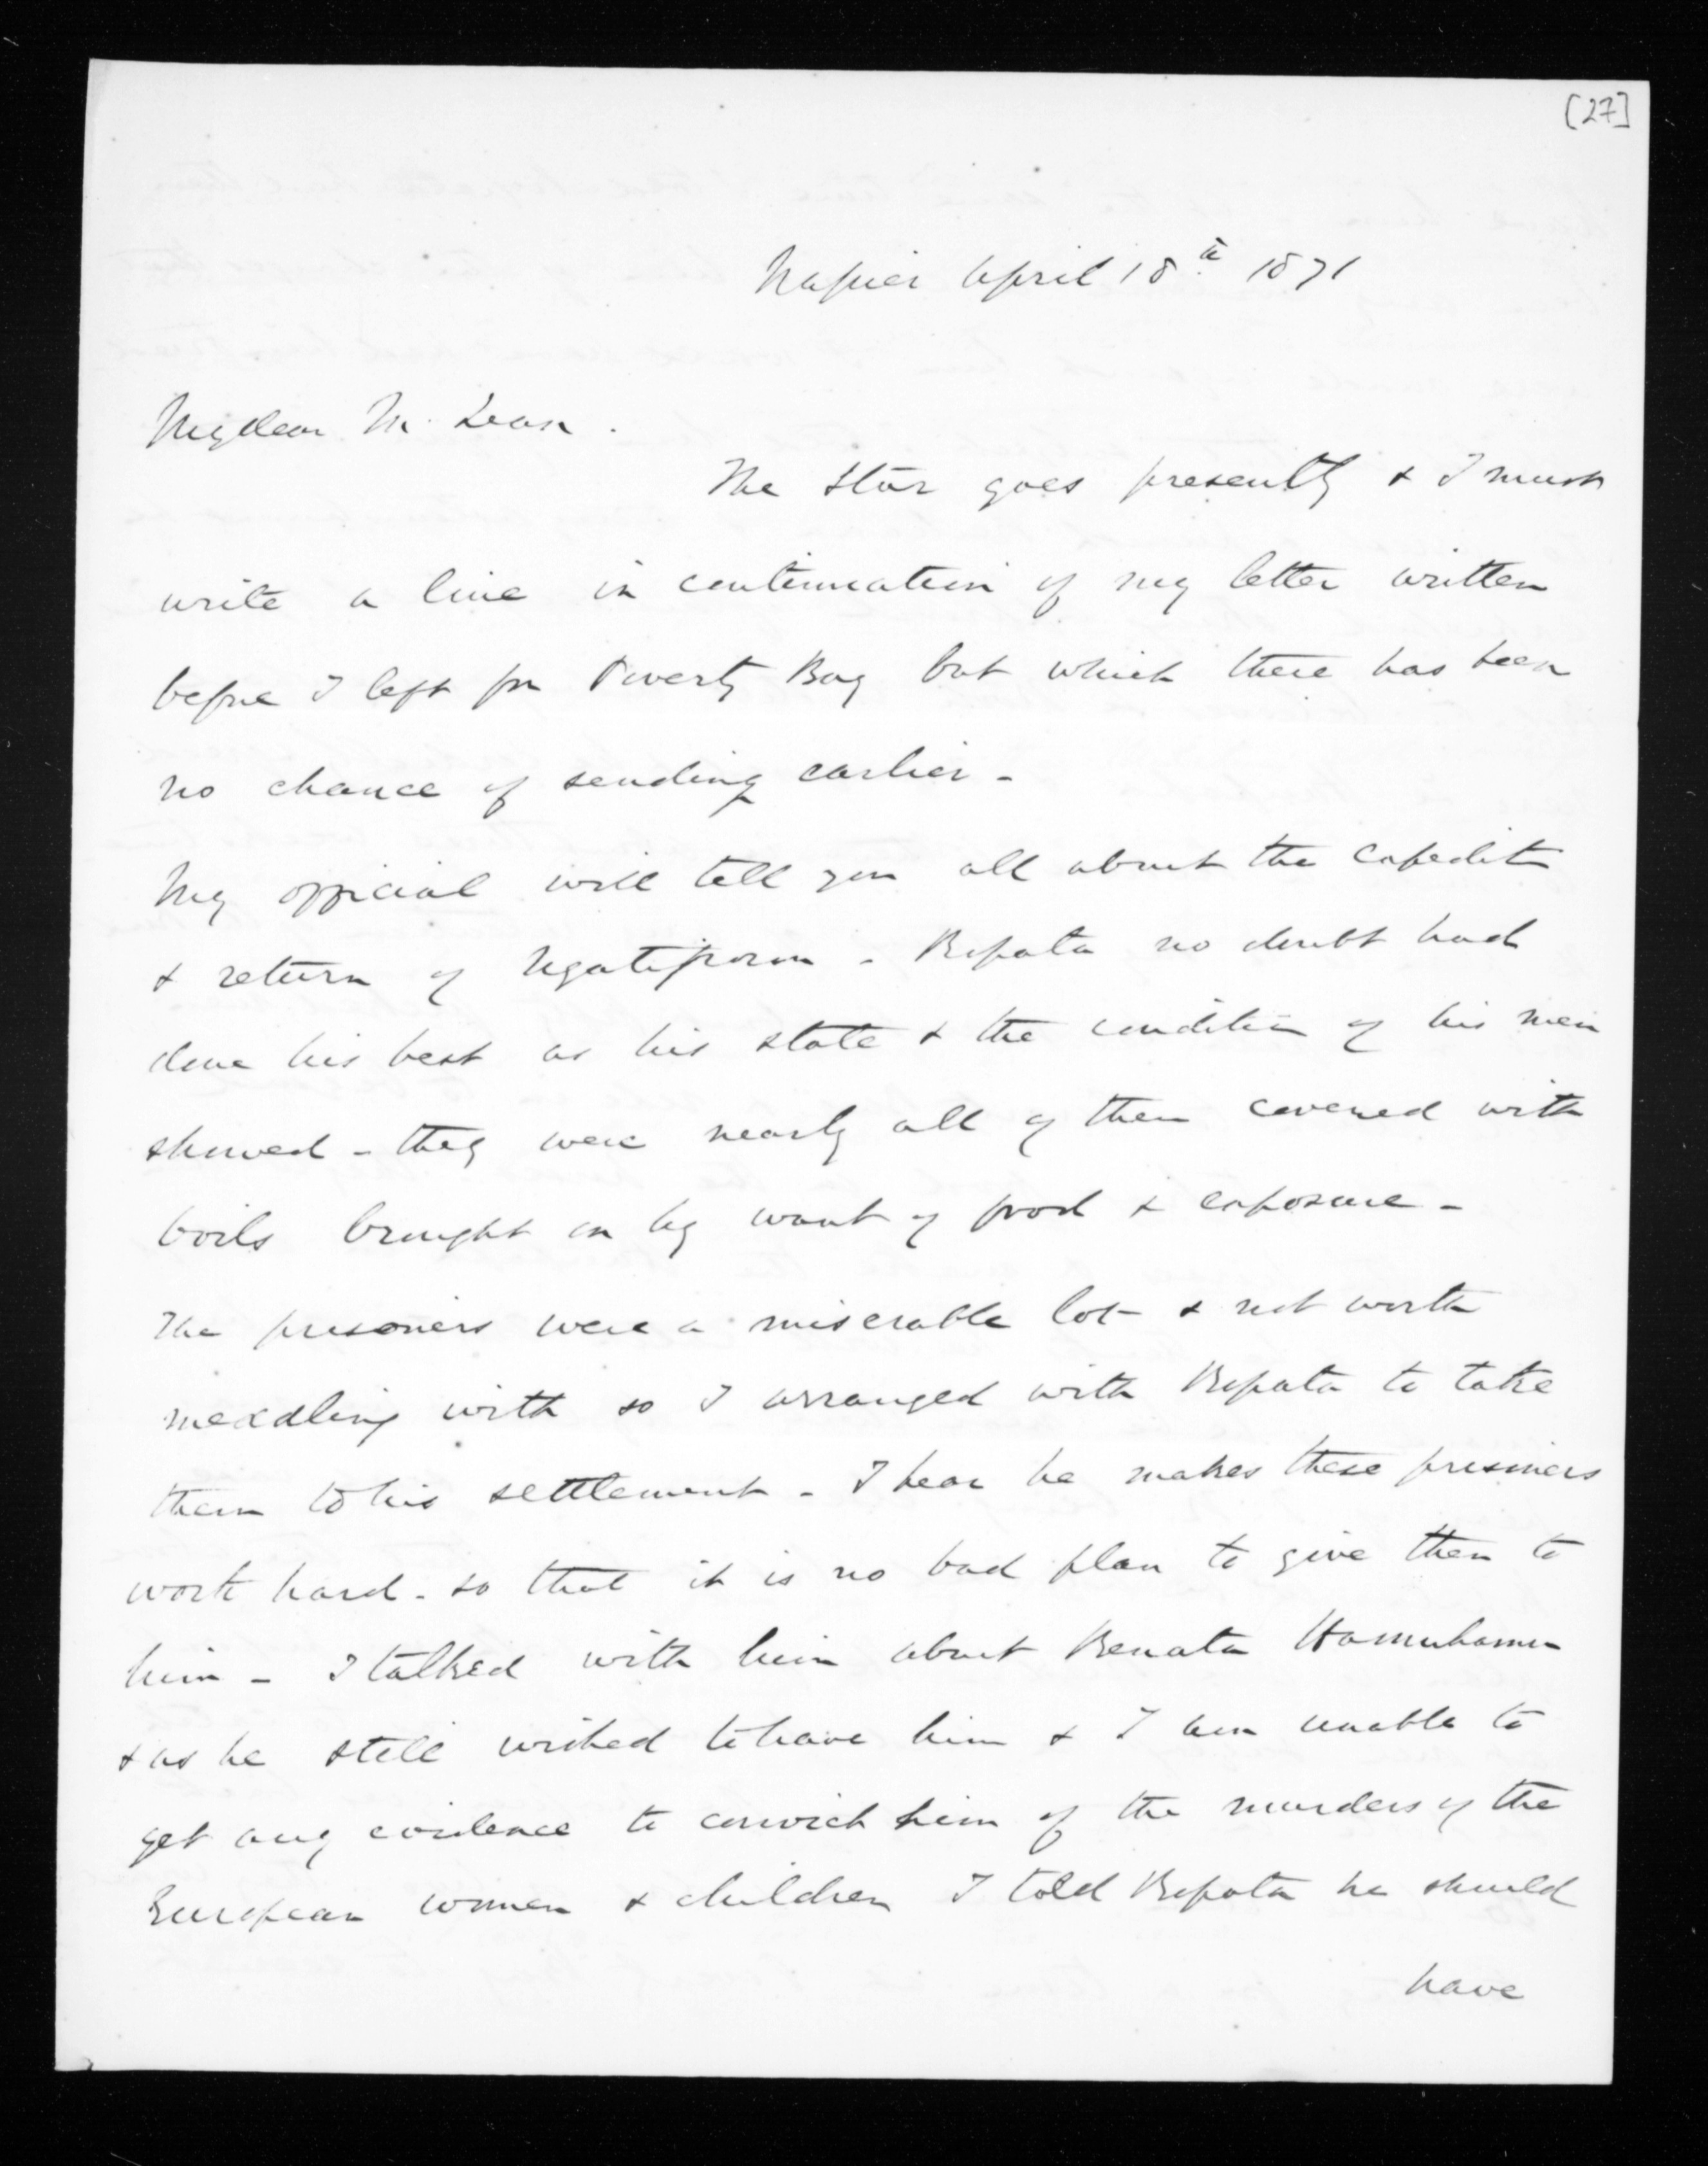 [27]
Napier April 18th 1871
My dear McLean.
The Star goes presently & I must
write a line in continuation of my letter written
before I left for Poverty Bay but which there has been
no chance of sending earlier -
My official will tell you all about the expedit
& return of Ngatiporou - Ropata no doubt had
done his best as his state & the condition of his men
showed - they were nearly all of them covered with
boils brought on by want of food & exposure -
The prisoners were a miserable lot & not worth
meddling with so I arranged with Ropata to take
them to his settlement - I hear he makes these prisoners
work hard - so that it is no bad plan to give them to
him - I talked with him about Renata Hamuhamu
& as he still wished to have him & I am unable to
get any evidence to convict him of the murders of the
European women & children I told Ropata he should
have